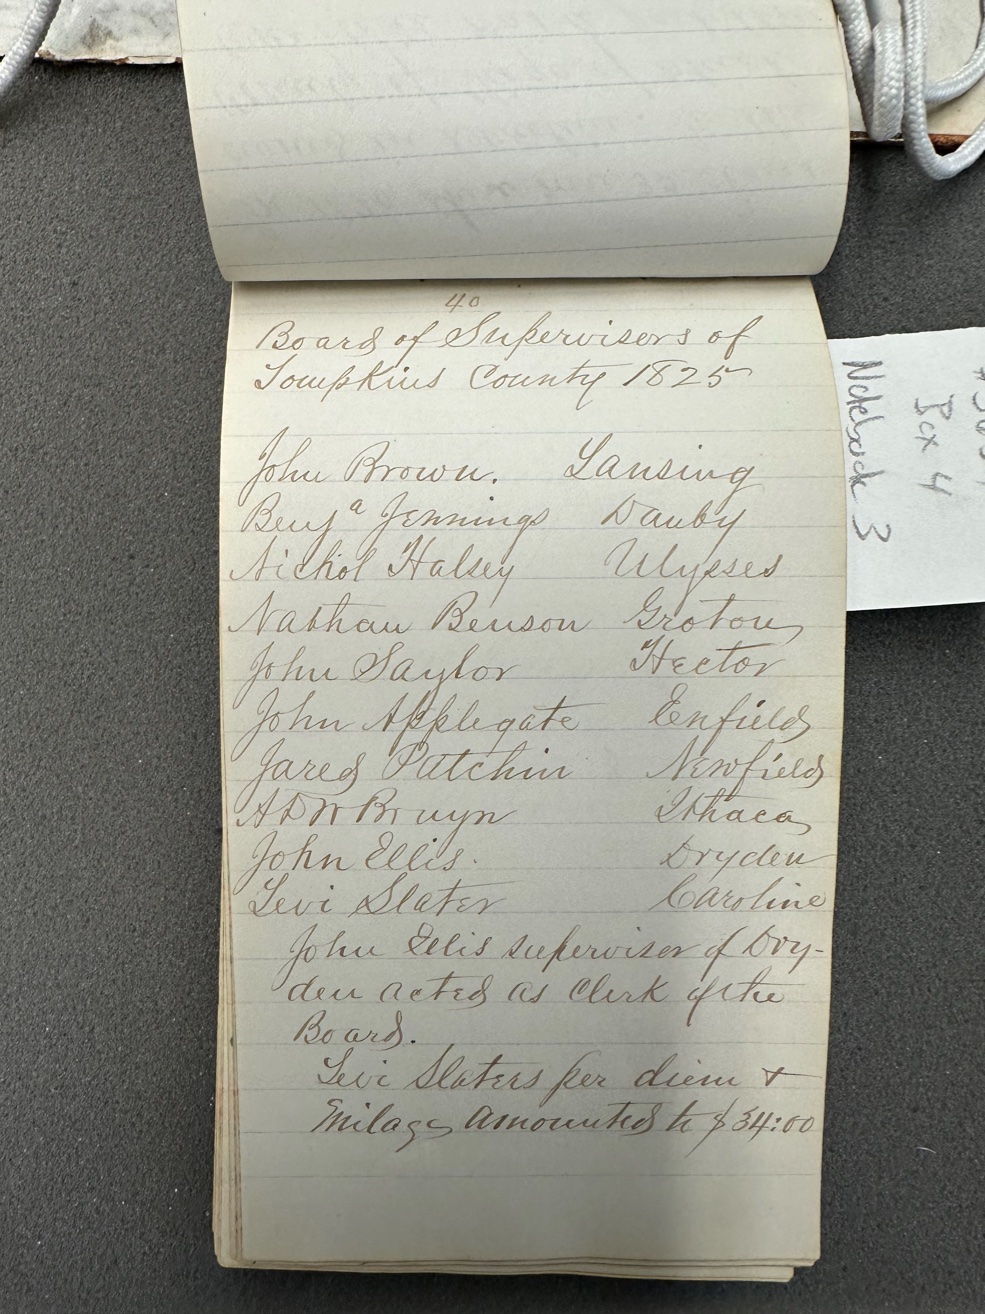 40
Board of Supervisors of
Tompkins County 1825
John Brown. Lansing
Benjᵃ Jennings Danby
Nichol Halsey Ulysses
Nathan Benson Groton
John Saylor Hector
John Applegate Enfield
Jared Patchin Newfield
A D W Bruyn Ithaca
John Ellis. Dryden
Levi Slater Caroline
John Ellis supervisor of Dry-
den acted as Clerk of the
Board.
Levi Slaters per diem &
Milage amounted to $34:00
Box 4
Notebook 3